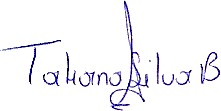 Tatiana Silva B